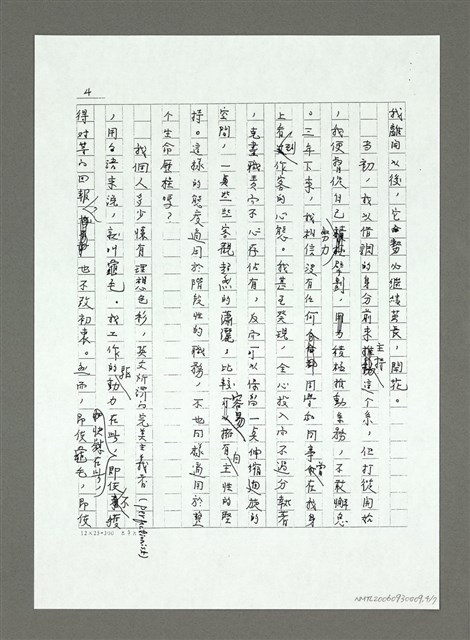 4
我離開以後,它勢必繼續茁長,開花。
當初,我以借調的身分前來主持這個系,但打從開始
,我便督促自己努力擘劃,用力積極推動系務,不敢懈怠
。三年下來,我相信沒有任何同學和同事會在我身
上看到作客的心態。我甚至發現,全心投入而不過分執著
,克盡職責而不心存佔有,反而可以保留一點伸縮迴旋的
空間,一點點客觀超然的瀟灑,比較容易擁有自主性的堅
持。這樣的態度適用於階段性的職務,不也同樣適用於整
個生命歷程嗎?
我個人多少懷有理想色彩,英文所謂完美主義者(perfectionist)
,用台語來說,就叫龜毛。我工作的動力在此,即使不獲
得對等的回報,也不改初衷。然而,即使龜毛,即使
12×25=300
NMTL20060930009,4/7